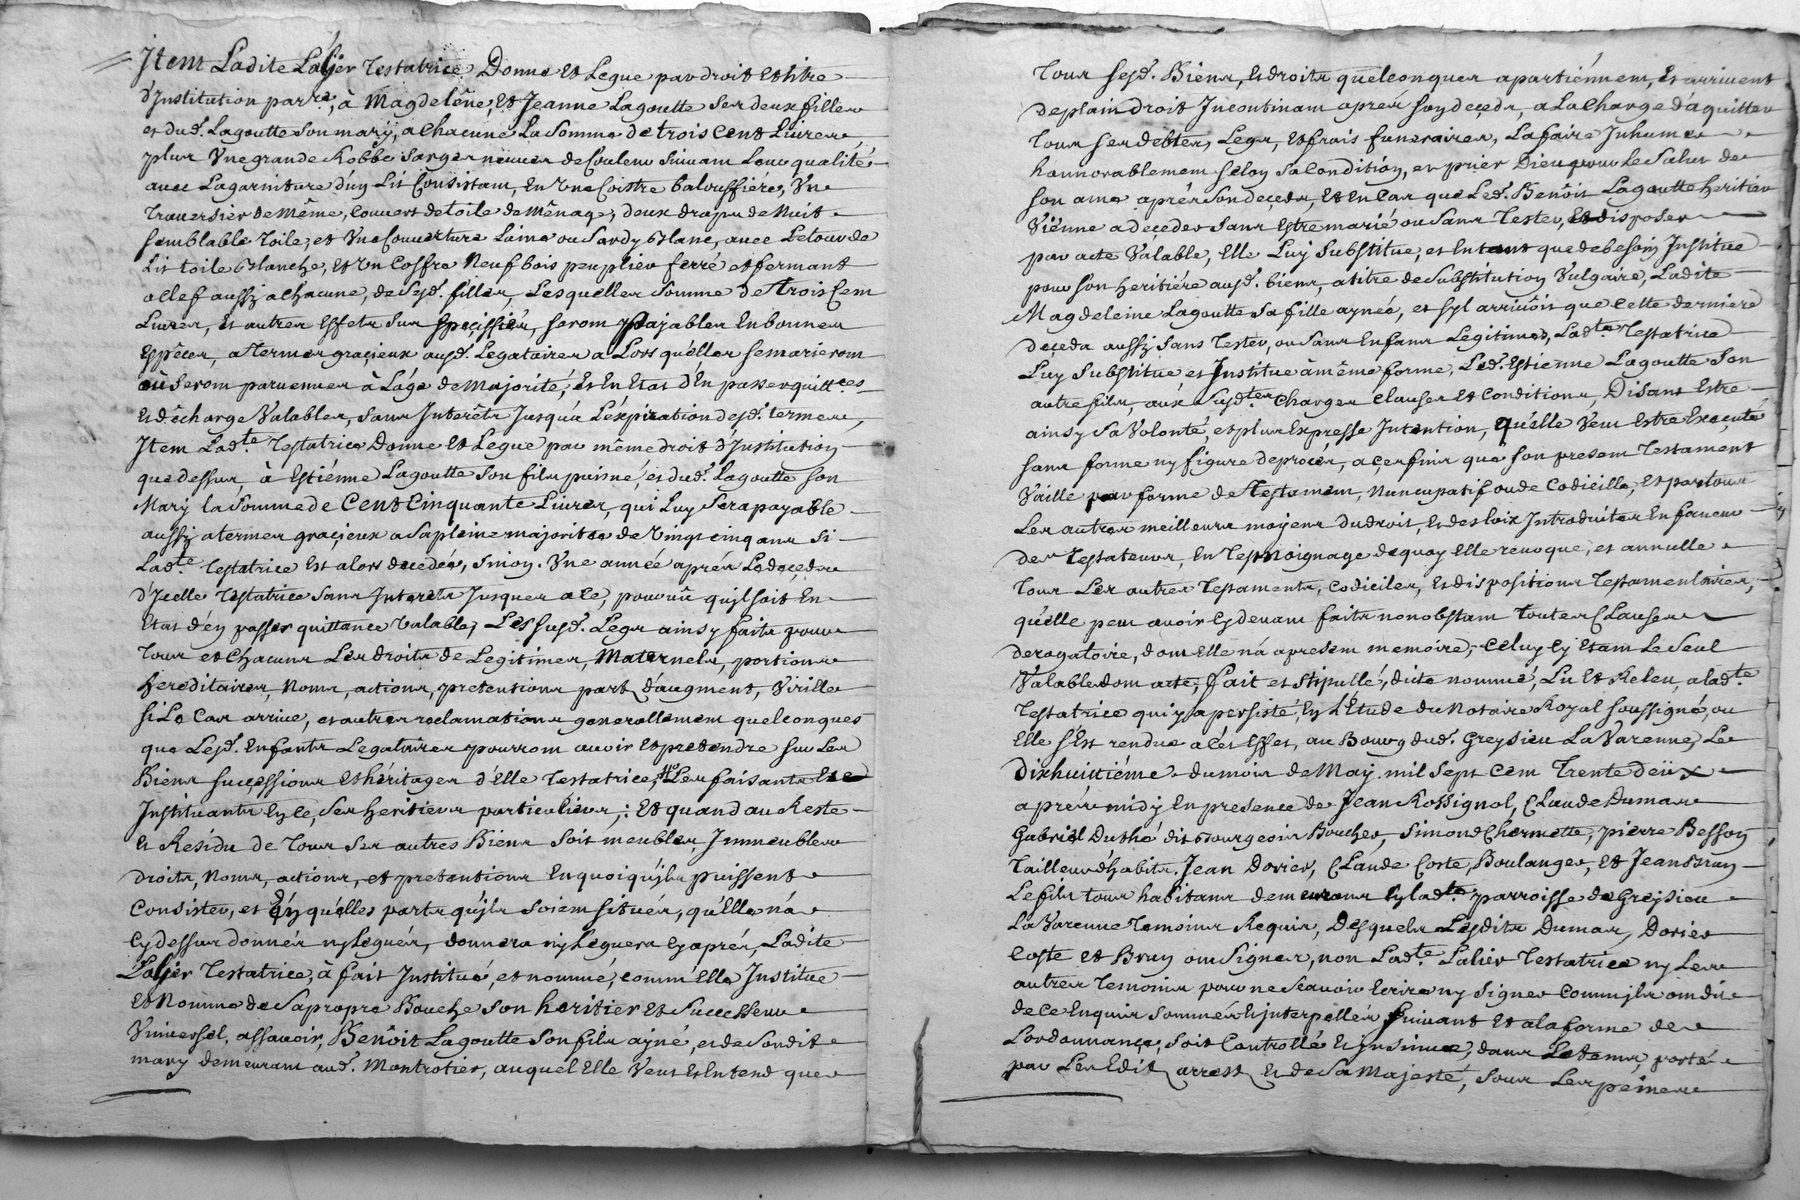 Item Ladite Lalier Testatrice Donne Et Legue par droit Et titre
d'Institution par.re, à Magdeléne, Et Jeanne Lagoutte Ses deux filles
et dud. Lagoutte Son mary, a chacune La Somme de trois Cent Livres
plus Une grande Robbe Sarge neuve de Couleur Suivant Leur qualité
avec La garniture d'un Lit Consistant, En Une Coistre baloussiére, Un
Traversier de Même, Couvert de toile de Ménage, deux draps de Nuit
Semblable Toile, et Une Couverture Laine ou Sardy blanc, avec Le tour de
Lit toile blanche, Et Un Coffre Neuf bois peuplier ferré et fermant
a Clef aussy a Chacune, de Sesd. filles, Lesquelles Somme de trois Cent
Livres, Et autres Effets Sus Speciffiés, Seront payables En bonnes
Espéces, a termes gracieux ausd. Legataires a Lors qu'elles Se marieront
où Seront parvenues à L'age de Majorité, Et En Etat d'En passer quitt.ces
Et décharge Valables, Sans Interêts Jusqu'a L'expiration desd. termes,
Item Lad.te Testatrice Donne Et Legue par même droit d'Institution
que dessus, à Estiénne Lagoutte Son fils puisné, et dud. Lagoutte Son
Mary la Somme de Cent Cinquante Livres, qui Luy Sera payable
aussy a termes gracieux a Sa pleine majorité de Vingt cinq ans Si
Lad.te Testatrice Est alors decedée, Sinon Une année aprés Le deçeds
d'Icelle Testatrice Sans Interets Jusques a Ce, pourvû qu'il Soit En
Etat d'en passer quittance Valable, Les Susd. Legs ainsy faits pour
Tous et Chacuns Les droits de Legitimes, Maternels, portions
hereditaires, Noms, actions, pretentions part d'augment, Virille
Si Le Cas arrive, et autres reclamations generallement quelconques
que Lesd. Enfants Legataires pourront avoir Et pretendre Sur Les
Biens successions Et héritages d'Elle Testatrice, Les faisants Et
Instituants En Ce, Ses heritiers particuliers,: Et quand au Reste
Et Résidu de Tous Ses autres Biens Soit meubles, Immeubles
droits, Noms, actions, et pretentions En quoi qu'ils puissent
Consister, et En qu'elles parts qu'ils Soient Situés, qu'Elle n'a
Cy dessus donnés ny Legués, donnera ny Leguera Cy aprés, Ladite
Lalier Testatrice, à fait Institué, et nommé, comm'Elle Institue
Et Nomme de Sa propre Bouche Son heritier Et Successeur
Universel, assavoir, Benôit Lagoutte Son fils ayné, et de Sondit
mary demeurant aud. Montrotier, auquel Elle Veut Et Entend que
Tous Sesd. Biens, Et droits quelconques apartiénnent, Et arrivent
de plain droit Incontinant aprés Son deçeds, a La Charge d'aquitter
Tous Ses debtes, Legs, Et frais funeraires, La faire Inhumer
honnorablement Selon Sa Condition, et prier Dieu pour Le Salut de
Son ame aprés Son deçeds, Et En Cas que Led. Benôit Lagoutte heritier
Viénne a deçeder Sans Estre marié ou Sans Tester, Et disposer
par acte Valable, Elle Luy Substitue, et En tant que de besoin Institue
pour Son heritiére ausd. biens, a titre de Substitution Vulgaire, Ladite
Magdeleine Lagoutte Sa fille aynée, et Syl arrivoit que Cette derniere
deçeda aussy Sans Tester, ou Sans Enfans Legitimes, Lad.te Testatrice
Luy Substitue et Institue à même forme, Led. Estienne Lagoutte Son
autre fils, aux Susd.tes Charges Clauses Et Conditions, Disant Estre
ainsy Sa Volonté, et plus Expresse Intention, qu'elle Veut Estre Executé
Sans forme ny figure de procés, a çes fins que Son present Testament
Vaille par forme de Testament, Nuncupatif ou de Codicille, Et par tous
Les autres meilleurs moyens du droit, Et des loix Introduites En faveur
des Testateurs, En Tesmoignage dequoy Elle revoque, et annulle
Tous Les autres Testaments, Codiciles, Et dispositions Testamentaires,
qu'elle peut avoir Cy devant faits nonobstant toutes Clauses
derogatoire, dont Elle n'à apresent memoire, Celuy Cy Etant Le Seul
Valable dont acte, fait et Stipullé, dicté nommé, Lu Et Releu, a lad.te
Testatrice qui y a persisté, En L'Etude du Notaire Royal Soussigné, ou
Elle S'Est rendue a Cet Effet, au Bourg dud. Greysieu La Varenne, Le
dixhuitiéme du mois de May mil Sept Cent Trente deux
aprés midy En presence de Jean Rossignol, Claude Dumas
Gabriel Duthé dit Bourgeois Boucher, Simond Chermette, pierre Besson
Tailleur d'habits, Jean Dorier, Claude Coste, Boulanger, Et Jean Brun
Le fils tous habitans demeurans En lad.te parroisse de Greysieu
La Varenne Temoins Requis, Desquels Lesdits Dumas, Dorier
Coste et Brun ont Signés, non Lad.te Lalier Testatrice ny Les
autres Temoins pour ne Sçavoir Ecrire ny Signer Comm'ils ont dit
de Ce Enquis Sommés Et Interpellés Suivant Et a la forme de
L'ordonnance, Soit Controllé Et Insinué, dans Le tems, porté
par Les Edit, arrest Et de Sa Majesté, Sous Les peines